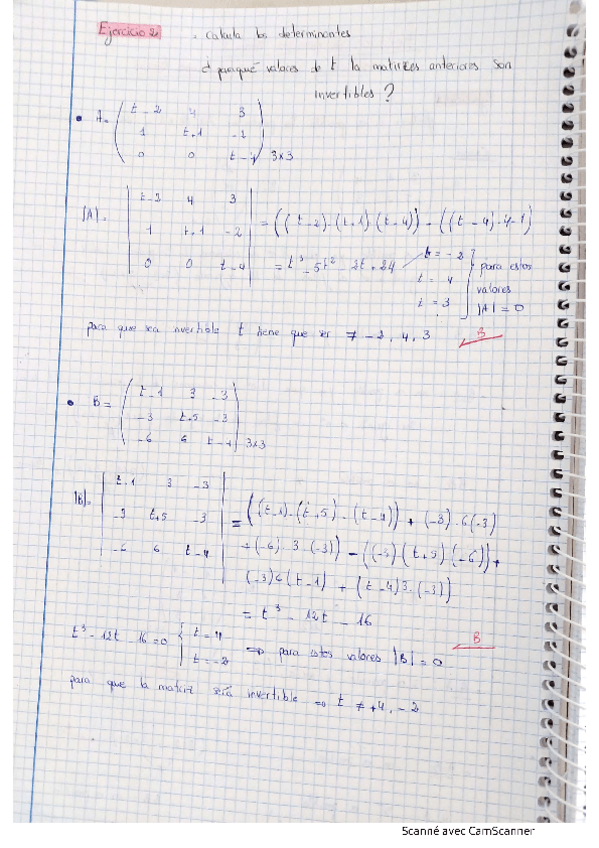 Ejercicio 2: • Calcula los determinantes
¿ para qué valores de t la matrizes anteriores son
invertibles ?
• A= ( t-2 4 3
1 t+1 -2
0 0 t-4 ) 3x3
|A|= | t-2 4 3
1 t+1 -2
0 0 t-4 |
= ((t-2)·(t+1)·(t-4)) - ((t-4)·4·1)
= t³ - 5t² - 2t + 24
t = -2
t = 4
t = 3
para estos
valores
|A| = 0
para que sea invertible t tiene que ser ≠ -2, 4, 3
B
• B= ( t-1 3 -3
-3 t+5 -3
-6 6 t-4 ) 3x3
|B|= | t-1 3 -3
-3 t+5 -3
-6 6 t-4 |
= ((t-1)·(t+5)·(t-4)) + (-3)·6·(-3)
+(-6)·3·(-3)) - ((-3)(t+5)(-6)) +
(-3)6(t-1) + (t-4)3·(-3))
= t³ - 12t - 16
t³ - 12t - 16 = 0 { t = 4
t = -2
⇒ para estos valores |B| = 0
B
para que la matriz será invertible ⇒ t ≠ +4, -2
Scanné avec CamScanner